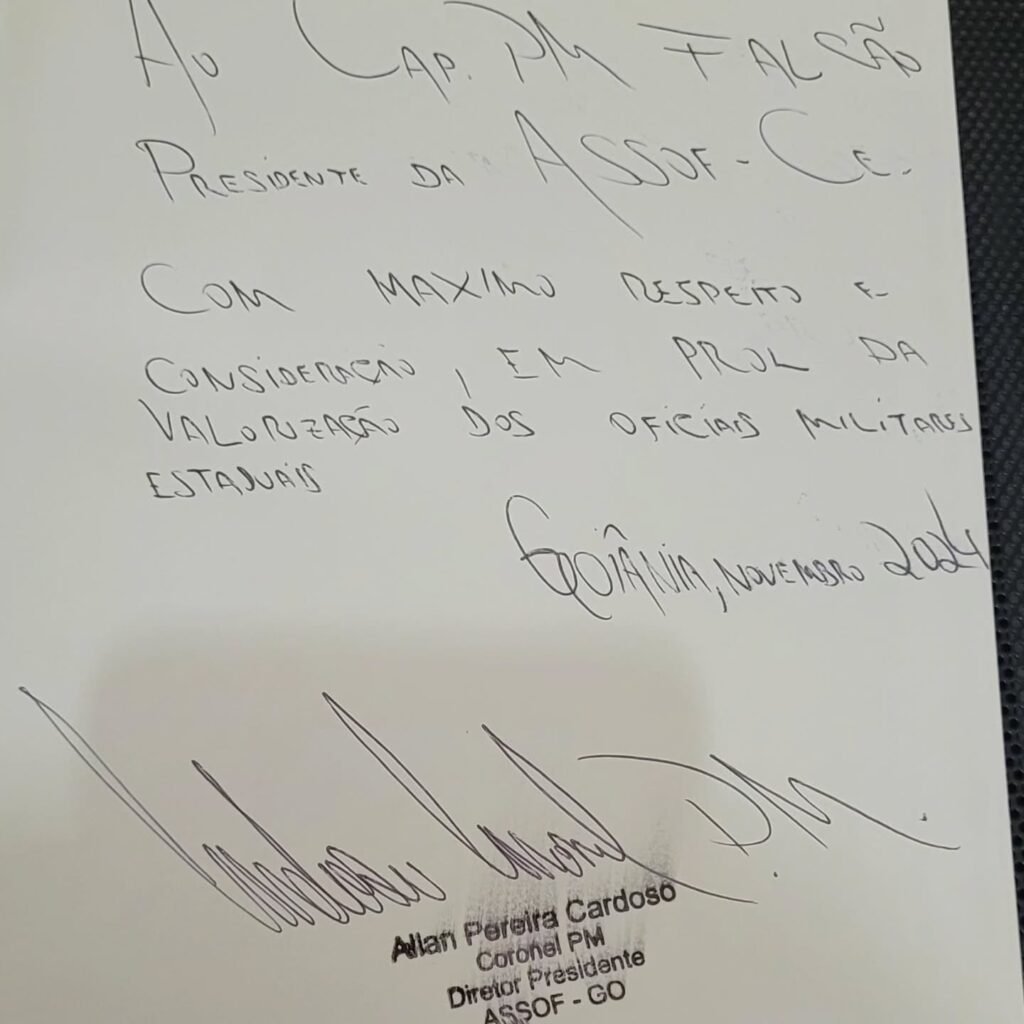 Ao Cap. PM FALCÃO
PRESIDENTE DA ASSOF-CE.
COM MAXIMO RESPEITO E
CONSIDERAÇÃO, EM PROL DA
VALORIZAÇÃO DOS OFICIAIS MILITARES
ESTADUAIS
GOIÂNIA, NOVEMBRO 2024
PM.
Allan Pereira Cardoso
Coronel PM
Diretor Presidente
ASSOF - GO